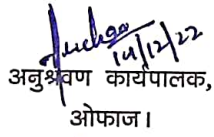 14/12/22
अनुश्रवण कार्यपालक,
ओफाज।